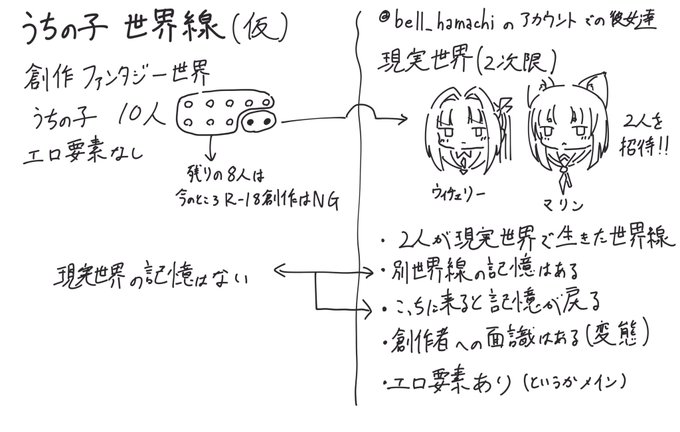 うちの子 世界線(仮)
創作ファンタジー世界
うちの子 10人
エロ要素なし
残りの8人は
今のところR-18創作はNG
現実世界の記憶はない
@bell_hamachiのアカウントでの彼女達
現実世界(2次限)
2人を
招待!!
ウィチェリー
マリン
・2人が現実世界で生きた世界線
・別世界線の記憶はある
・こっちに来ると記憶が戻る
・創作者への面識はある(変態)
・エロ要素あり(というかメイン)